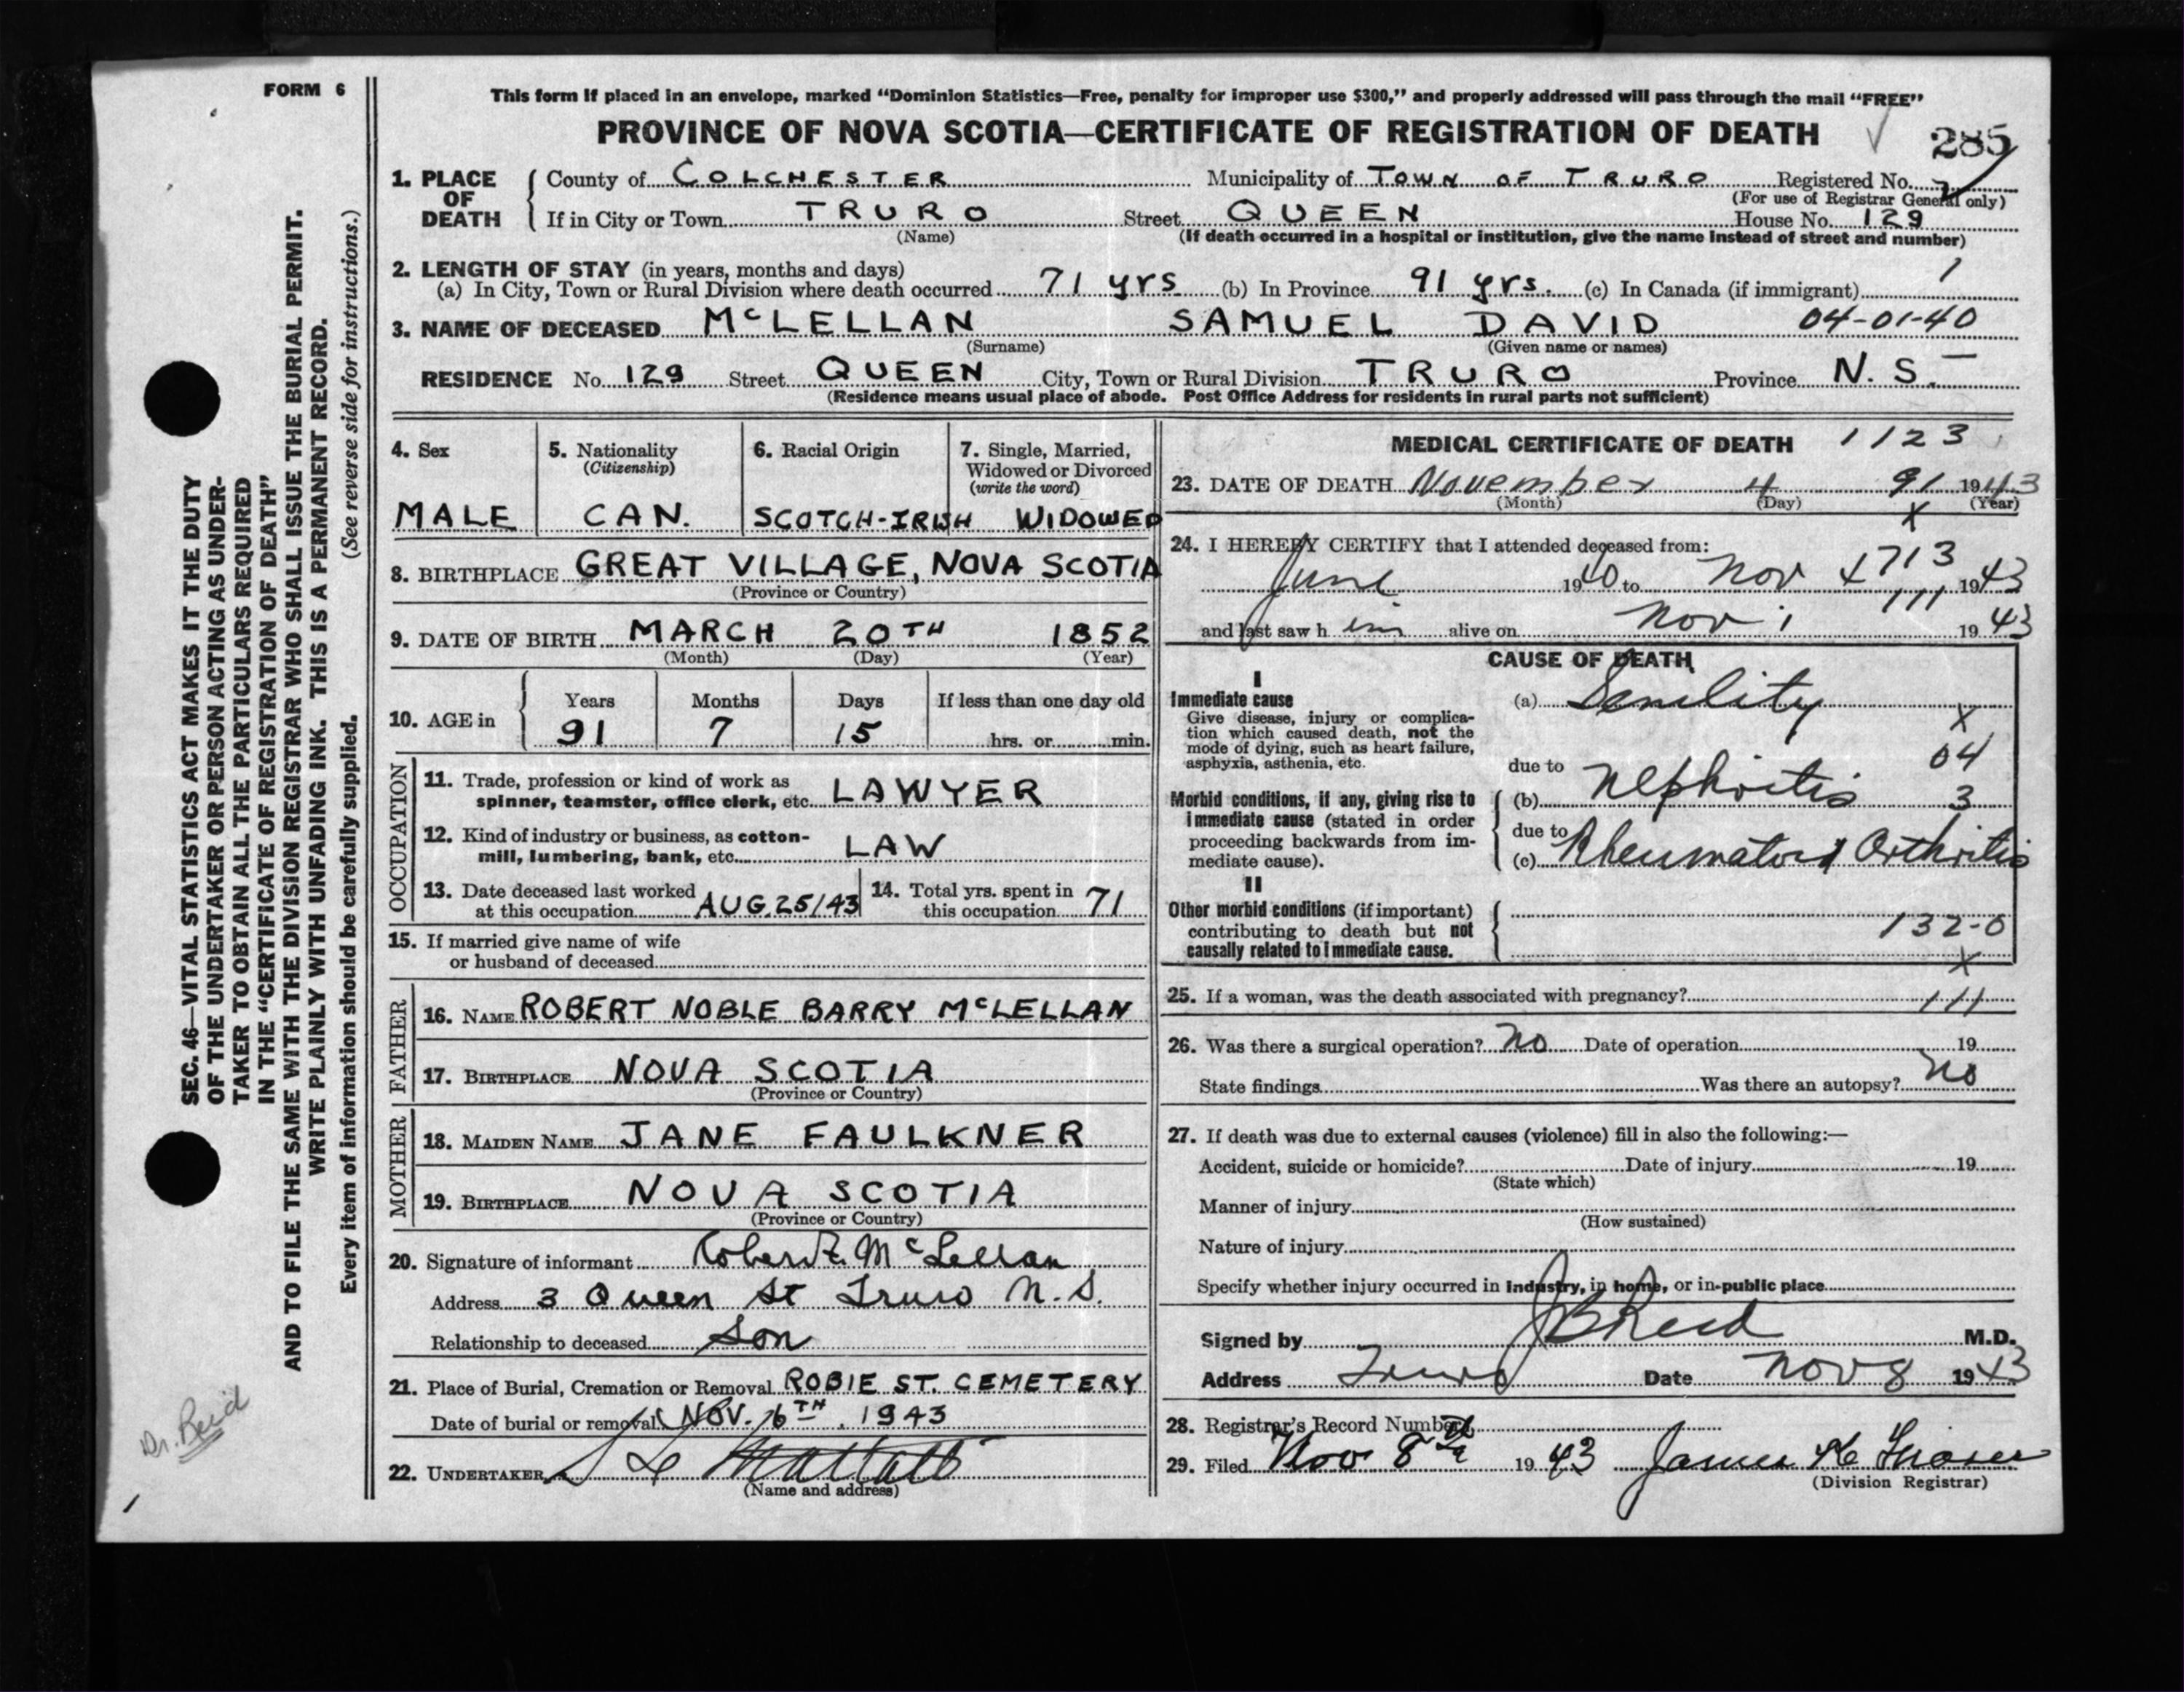 FORM 6
This form if placed in an envelope, marked "Dominion Statistics—Free, penalty for improper use $300," and properly addressed will pass through the mail "FREE"
PROVINCE OF NOVA SCOTIA—CERTIFICATE OF REGISTRATION OF DEATH
285
1. PLACE OF DEATH
County of COLCHESTER Municipality of TOWN OF TRURO Registered No.
(For use of Registrar General only)
If in City or Town TRURO Street QUEEN House No. 129
(Name) (If death occurred in a hospital or institution, give the name instead of street and number)
2. LENGTH OF STAY (in years, months and days)
(a) In City, Town or Rural Division where death occurred 71 yrs (b) In Province 91 yrs. (c) In Canada (if immigrant)
3. NAME OF DECEASED McLELLAN SAMUEL DAVID 04-01-40
(Surname) (Given name or names)
RESIDENCE No. 129 Street QUEEN City, Town or Rural Division TRURO Province N.S.
(Residence means usual place of abode. Post Office Address for residents in rural parts not sufficient)
4. Sex
MALE
5. Nationality
(Citizenship)
CAN.
6. Racial Origin
SCOTCH-IRISH
7. Single, Married,
Widowed or Divorced
(write the word)
WIDOWED
8. BIRTHPLACE GREAT VILLAGE, NOVA SCOTIA
(Province or Country)
9. DATE OF BIRTH MARCH 20TH 1852
(Month) (Day) (Year)
10. AGE in
Years Months Days If less than one day old
91 7 15 hrs. or min.
OCCUPATION
11. Trade, profession or kind of work as
spinner, teamster, office clerk, etc. LAWYER
12. Kind of industry or business, as cotton-
mill, lumbering, bank, etc. LAW
13. Date deceased last worked
at this occupation AUG. 25/43
14. Total yrs. spent in
this occupation 71
15. If married give name of wife
or husband of deceased
FATHER
16. NAME ROBERT NOBLE BARRY McLELLAN
17. BIRTHPLACE NOVA SCOTIA
(Province or Country)
MOTHER
18. MAIDEN NAME JANE FAULKNER
19. BIRTHPLACE NOVA SCOTIA
(Province or Country)
20. Signature of informant Robert McLellan
Address 3 Queen St Truro N.S.
Relationship to deceased Son
21. Place of Burial, Cremation or Removal ROBIE ST. CEMETERY
Date of burial or removal NOV. 6TH, 1943
22. UNDERTAKER
(Name and address)
MEDICAL CERTIFICATE OF DEATH 1123
23. DATE OF DEATH November 4 91 1943
(Month) (Day) (Year)
X
24. I HEREBY CERTIFY that I attended deceased from:
713
June 1940 to Nov 4 1943
111
and last saw him alive on Nov 1 1943
CAUSE OF DEATH
I
Immediate cause
Give disease, injury or complica-
tion which caused death, not the
mode of dying, such as heart failure,
asphyxia, asthenia, etc.
(a) Senility
X
04
due to
Morbid conditions, if any, giving rise to
immediate cause (stated in order
proceeding backwards from im-
mediate cause).
(b) Nephritis 3
due to
(c) Rheumatoid Arthritis
II
Other morbid conditions (if important)
contributing to death but not
causally related to immediate cause.
132-0
X
25. If a woman, was the death associated with pregnancy? 111
26. Was there a surgical operation? No Date of operation 19
State findings Was there an autopsy? No
27. If death was due to external causes (violence) fill in also the following:—
Accident, suicide or homicide? Date of injury 19
(State which)
Manner of injury
(How sustained)
Nature of injury
Specify whether injury occurred in industry, in home, or in public place
Signed by J B Reid M.D.
Address Truro Date Nov 8 1943
28. Registrar's Record Number
29. Filed Nov 8 1943 James
(Division Registrar)
SEC. 46—VITAL STATISTICS ACT MAKES IT THE DUTY
OF THE UNDERTAKER OR PERSON ACTING AS UNDER-
TAKER TO OBTAIN ALL THE PARTICULARS REQUIRED
IN THE "CERTIFICATE OF REGISTRATION OF DEATH"
AND TO FILE THE SAME WITH THE DIVISION REGISTRAR WHO SHALL ISSUE THE BURIAL PERMIT.
WRITE PLAINLY WITH UNFADING INK. THIS IS A PERMANENT RECORD.
Every item of information should be carefully supplied. (See reverse side for instructions.)
Dr. Reid